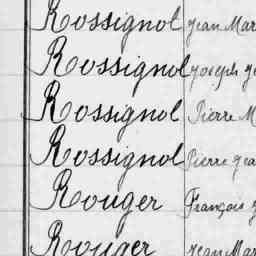 Rossignol Jean Mar
Rossignol Joseph
Rossignol Pierre M
Rossignol Pierre Jea
Rouger François J
Rouger Jean Mar